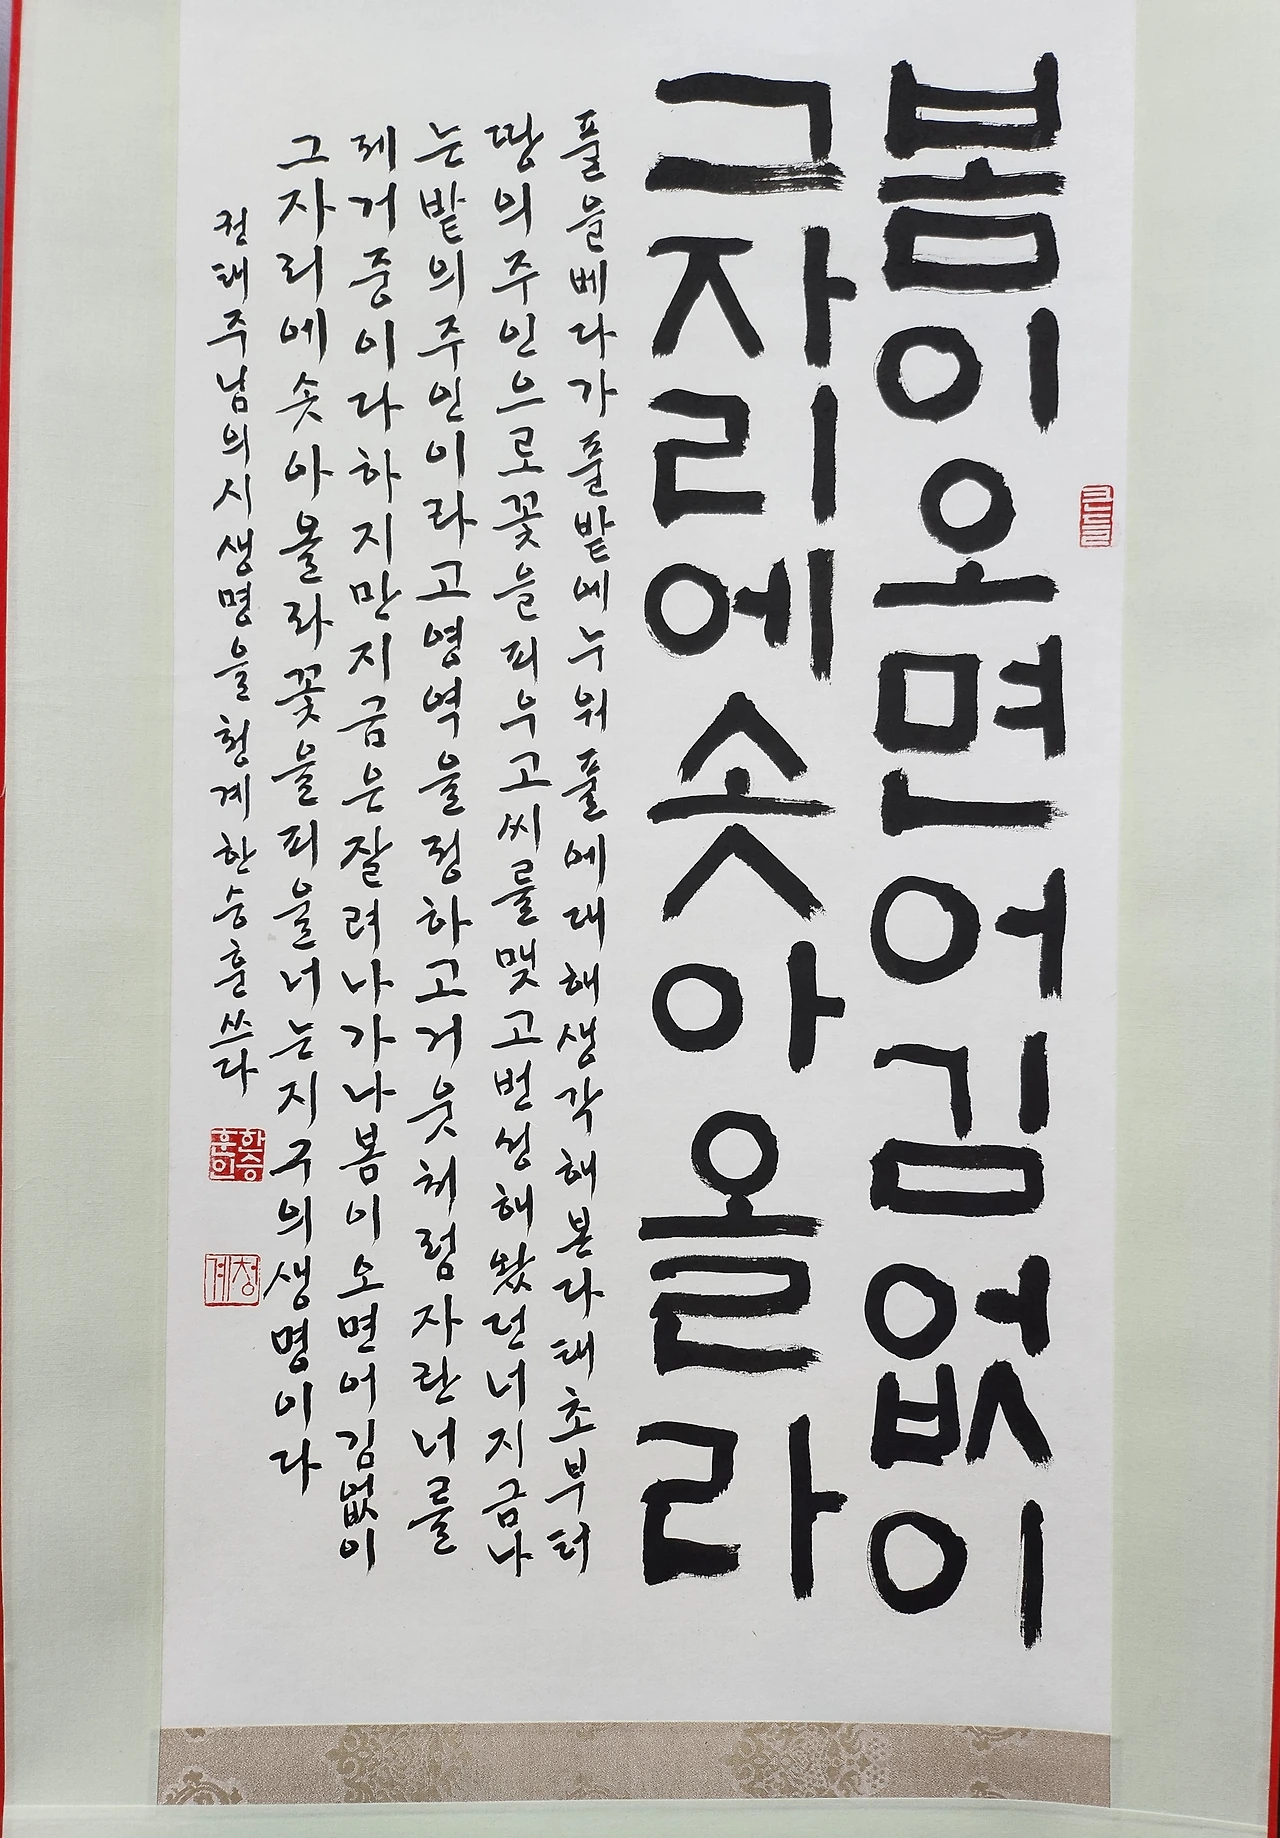 봄이오면어김없이
그자리에솟아올라
풀을베다가풀밭에누워풀에대해생각해본다태초부터
땅의주인으로꽃을피우고씨를맺고번성해왔던너지금나
는밭의주인이라고영역을정하고거웃처럼자란너를
제거중이다하지만지금은잘려나가나봄이오면어김없이
그자리에솟아올라꽃을피울너는지구의생명이다
권태주님의시생명을청계한승훈쓰다
한승훈인
청계